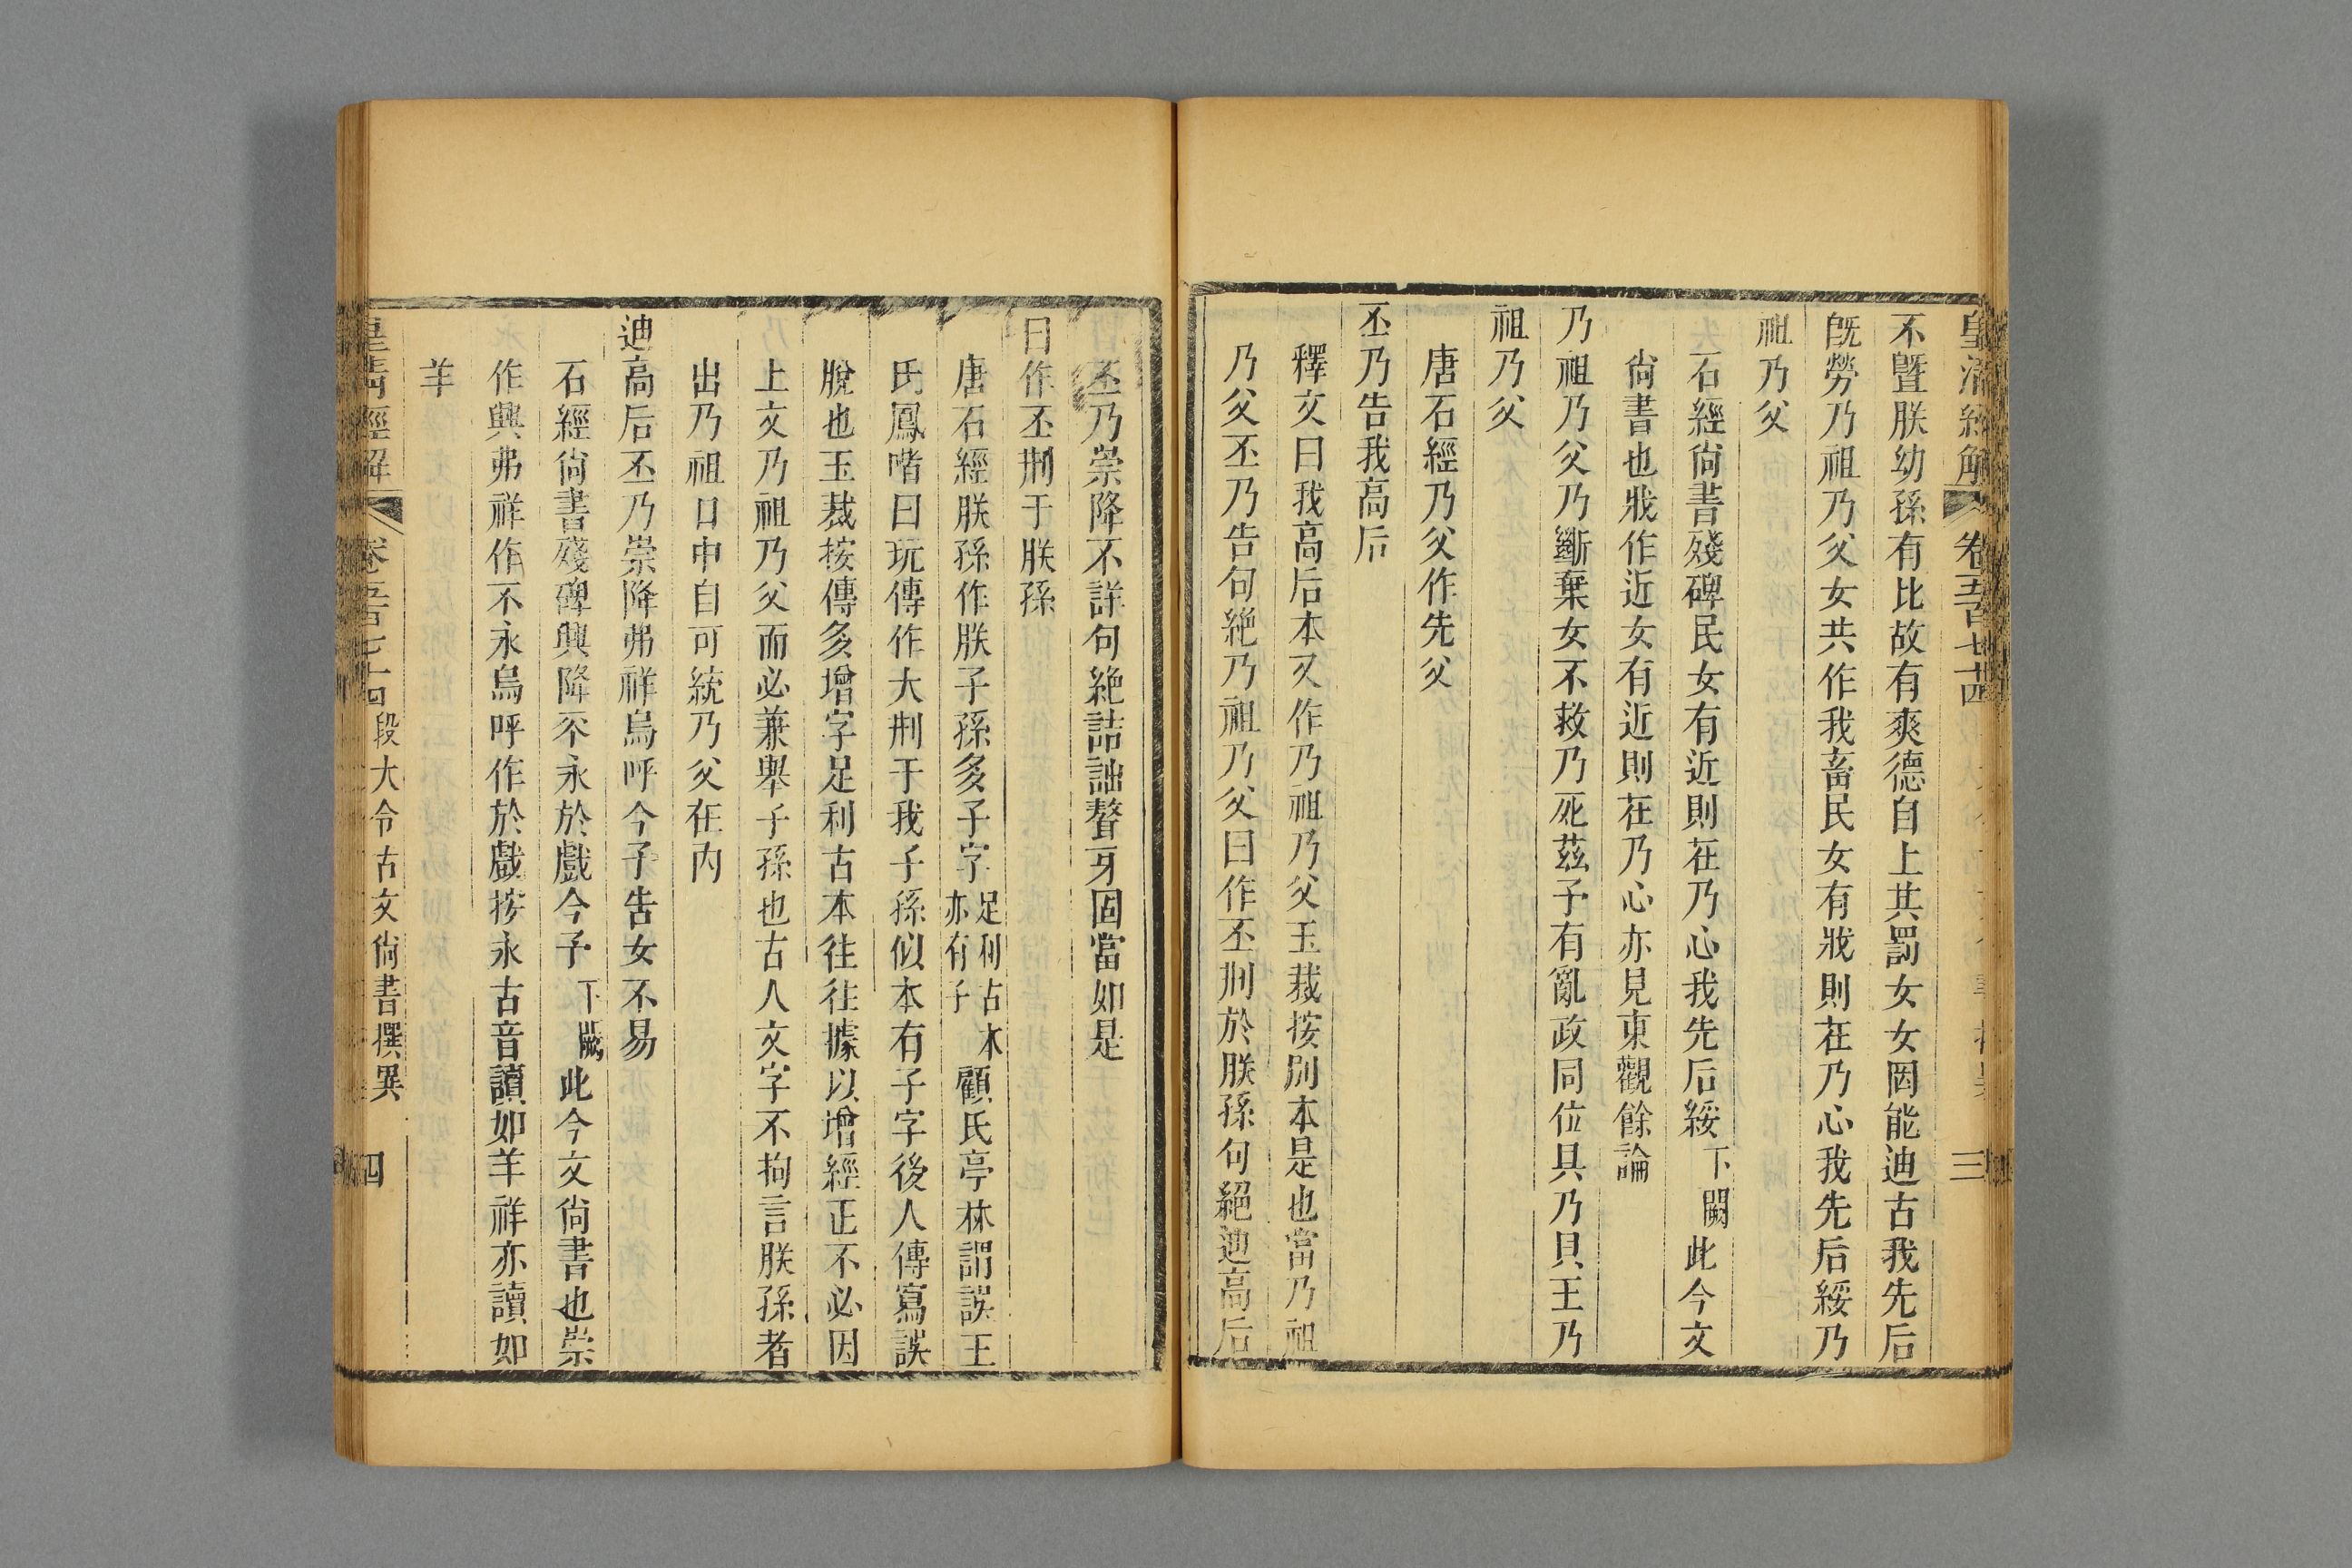 皇清經解 卷五百七十四 三
不曁朕幼孫有比故有爽德自上其罰女女罔能迪古我先后
旣勞乃祖乃父女共作我畜民女有戕則在乃心我先后綏乃
祖乃父
石經尙書殘碑民女有近則在乃心我先后綏下闕此今文
尙書也戕作近女有近則在乃心亦見東觀餘論
乃祖乃父乃斷棄女不救乃死茲予有亂政同位具乃貝王乃
祖乃父
唐石經乃父作先父
丕乃告我高后
釋文曰我高后本又作乃祖乃父玉裁按別本是也當乃祖
乃父丕乃告句絶乃祖乃父曰作丕刑於朕孫句絕迪高后
丕乃崇降不詳句絶詰詘聱牙固當如是
曰作丕刑于朕孫
唐石經朕孫作朕子孫多子字足利古本亦有子顧氏亭林謂誤王
氏鳳喈曰玩傳作大刑于我子孫似本有子字後人傳寫誤
脫也玉裁按傳多增字足利古本往往據以增經正不必因
上文乃祖乃父而必兼舉子孫也古人文字不拘言朕孫者
出乃祖口中自可統乃父在內
迪高后丕乃崇降弗祥烏呼今予告女不易
石經尙書殘碑興降不永於戲今予下闕此今文尙書也崇
作興弗祥作不永烏呼作於戲按永古音讀如羊祥亦讀如
羊
皇清經解 卷五百七十四 段大令古文尙書撰異 四